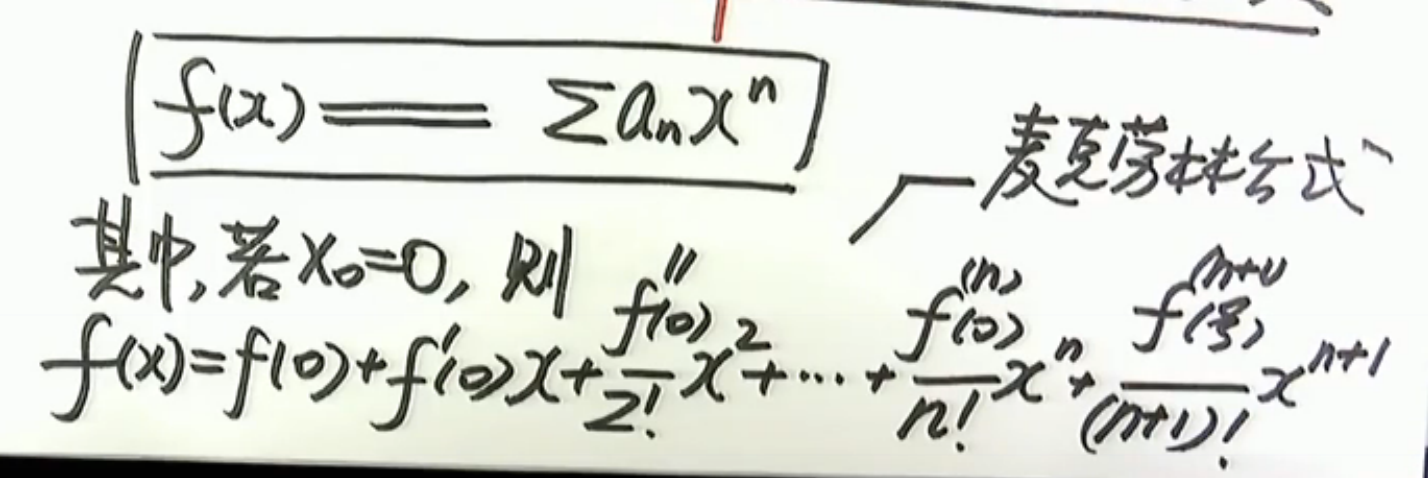 f(x) = Σaₙxⁿ
麦克劳林公式
其中,若x₀=0, 则
f(x)=f(0)+f'(0)x+\frac{f''(0)}{2!}x²+⋯+\frac{f⁽ⁿ⁾(0)}{n!}xⁿ+\frac{f⁽ⁿ⁺¹⁾(ξ)}{(n+1)!}xⁿ⁺¹